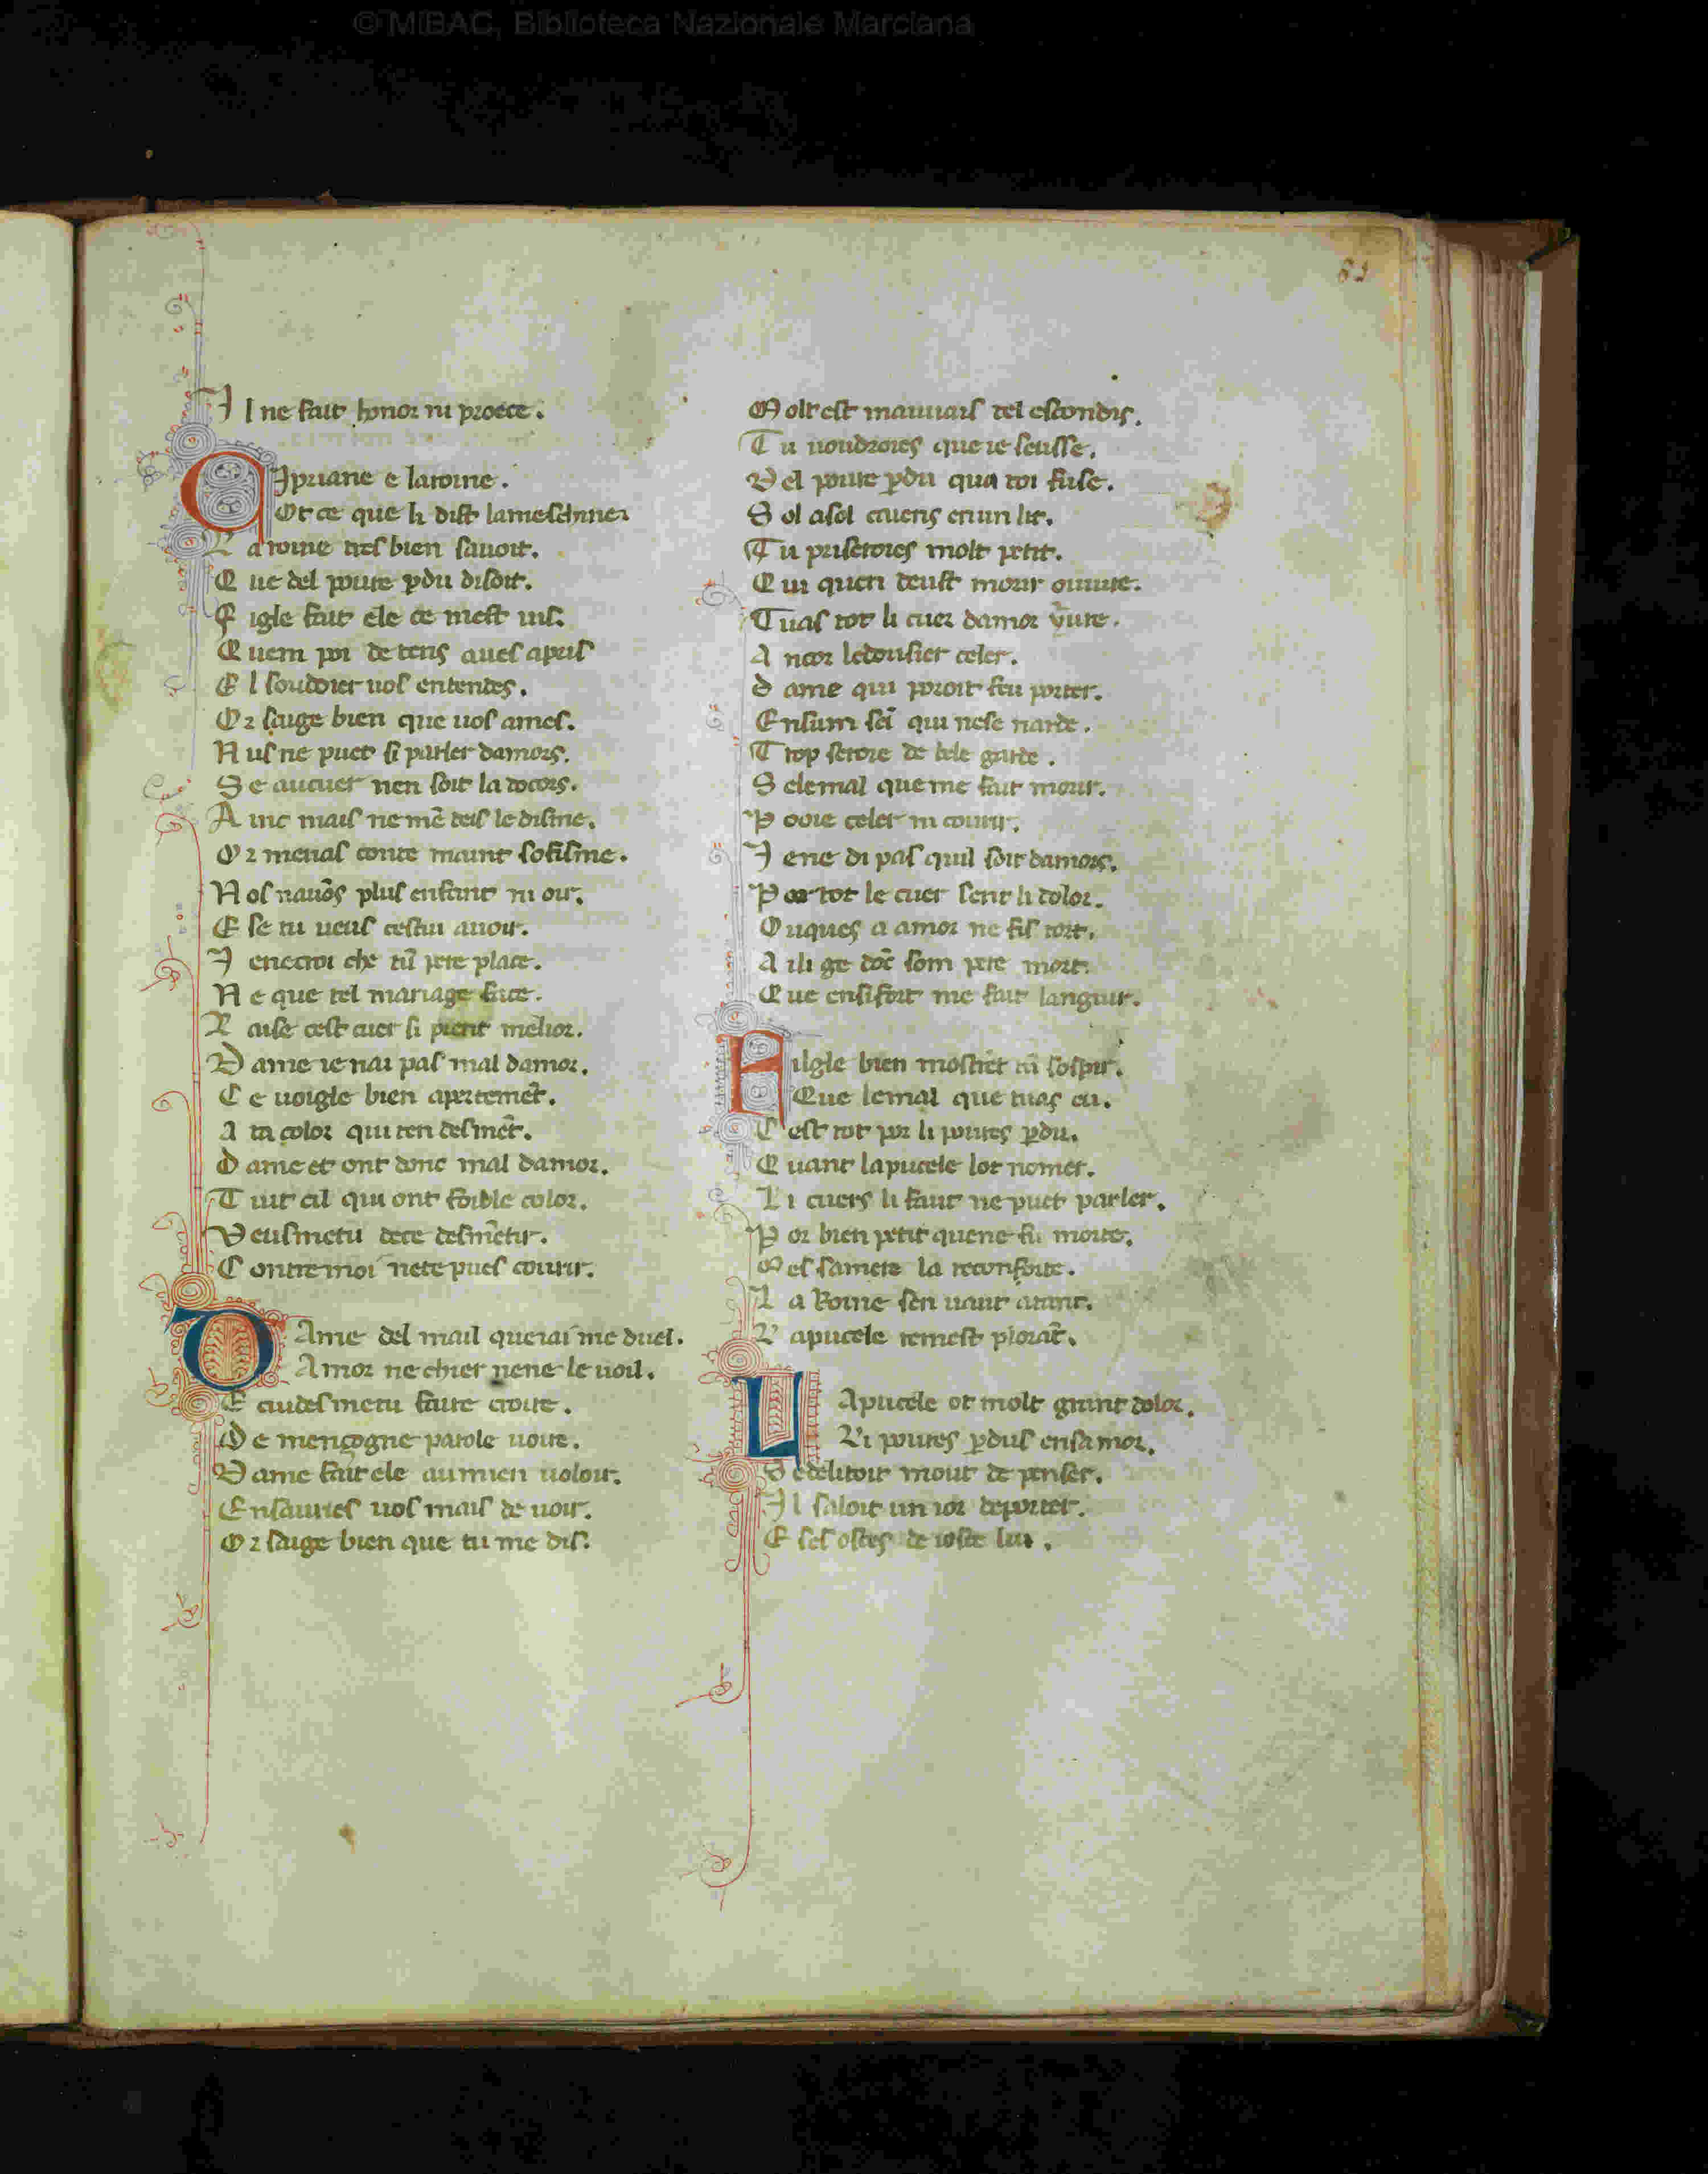 © MiBAC, Biblioteca Nazionale Marciana
81
I l ne fait honor ni proece.
Cipriane e laroine.
Ot ce que li dist lameschine
L a roine tres bien sauoit.
Q ue del poure ꝑdu disoit.
F igle fait ele ce mest uis.
Q uem poi de tens aues apris
E l soudoier uos entendes.
O r saige bien que uos ames.
N us ne puet si parler damors.
S e aucuer nen soit la docors.
A inc mais ne mē deis le disme.
O r menas conte maint sofisme.
N os nauōs plus enfant ni oir.
E se tu ueus cestui auoir.
I enecroi che tū pere place.
N e que tel mariage face.
L aise cest cuer si prent melior.
D ame ie nai pas mal damor.
C e uoigle bien apertemēt.
A ta color qui ten desmēt.
D ame et ont donc mal damor.
T uit cil qui ont foible color.
V eusmetu dece desmētir.
C ontremoi nete pues courir.
Dame del mail queiai me duel.
Amor ne chier nene le uoil.
E cuidesmetu faire croire.
D e mençogne parole uoire.
D ame fait ele aumien uoloir.
E nsauries uos mais de uoir.
O r saige bien que tu me dis.
M olt est mauuais tel escondis.
T u uoudroies que ie seusse.
D el poure ꝑdu qua toi fuse.
S ol asol
T u priseroies molt petit.
Q ui quen deust morir ouiure.
T uas tot li cuer damor
A ncor
D ame qui poroit feu porter.
E nsum qui nese narde.
T rop seroie de bele garde.
S elemal que me fait morir.
P ooie celer ni courir.
I ene di pas quil soit damors.
P or tot le cuer sent li dolor.
O nques a amor ne fis tort.
A ili ge dōc som pere mort.
Q ue ensifort me fait languir.
Filgle bien mostrēt tū sospir.
Que lemal que tuas eu.
C est tot por li poures ꝑdu.
Q uant lapucele lot nomer.
L i cuers li faut ne puet parler.
P or bien petit quene fu morte.
M es samere la reconforte.
L a Roine sen uait atant.
L apucele remest plorāt.
Lapucele ot molt grant dolor.
Li poures ꝑdus ensamor.
S edelitoit mout de penser.
I l saloit un ior deporter.
E ses ostes de ioste lui.